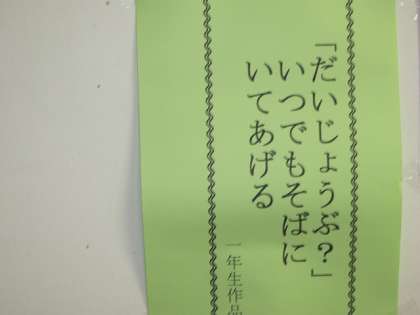 「だいじょうぶ？」
いつでもそばに
いてあげる
一年生作品